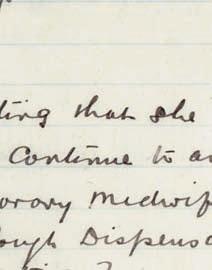 ting that she
Continue to a
orary Midwif
ough Dispens